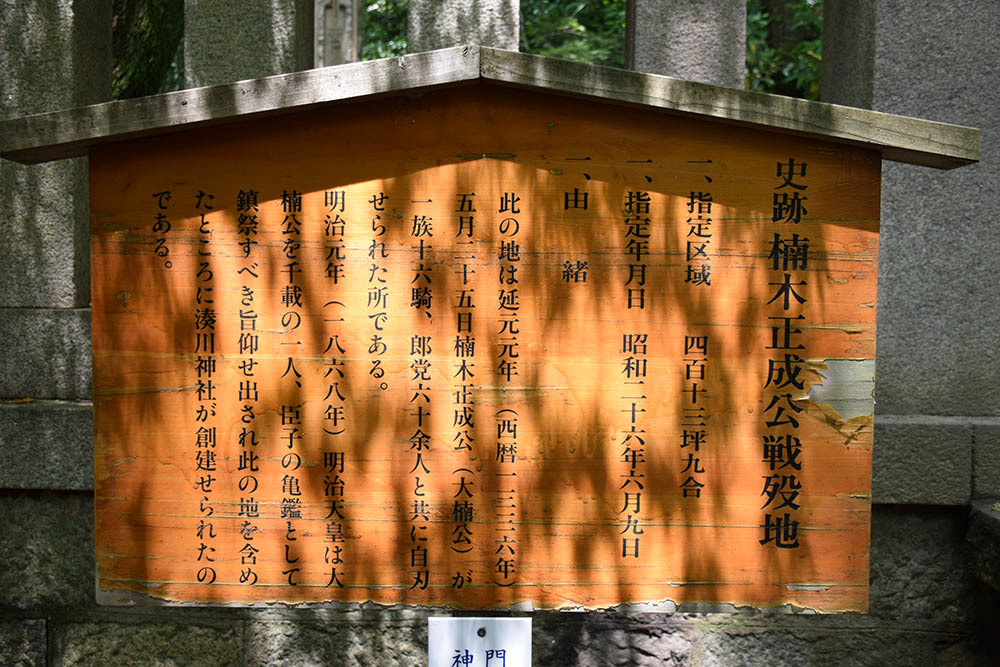 史跡 楠木正成公戦殁地
一、指定区域 四百十三坪九合
一、指定年月日 昭和二十六年六月九日
一、由緒
此の地は延元元年（西暦一三三六年）
五月二十五日楠木正成公（大楠公）が
一族十六騎、郎党六十余人と共に自刃
せられた所である。
明治元年（一八六八年）明治天皇は大
楠公を千載の一人、臣子の亀鑑として
鎮祭すべき旨仰せ出され此の地を含め
たところに湊川神社が創建せられたの
である。
門
神